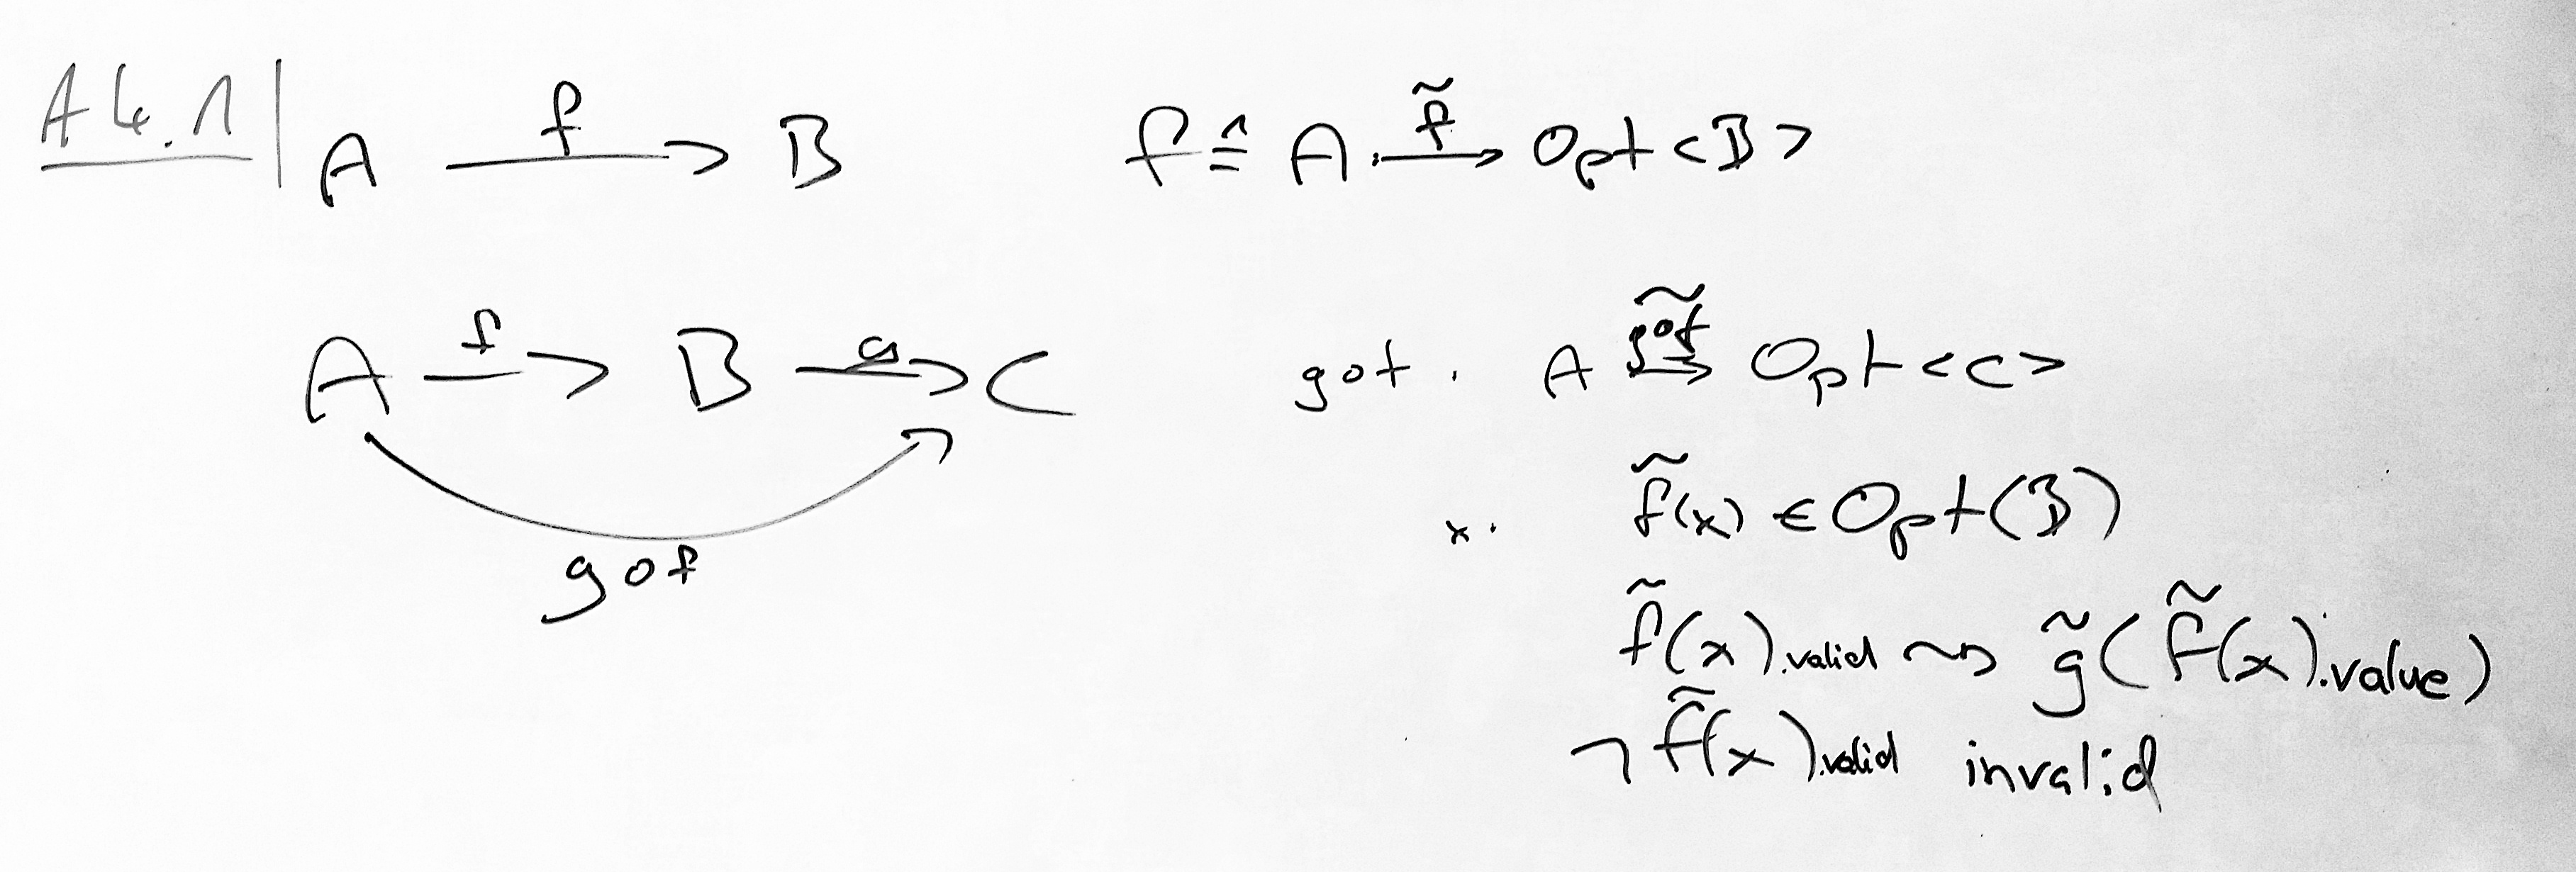 A4.1 | A —f→ B f ≙ A —f̃→ Opt<B>
A —f→ B —g→ C g∘f . A —g∘f~→ Opt<C>
g∘f x. f̃(x) ∈ Opt(B)
f̃(x).valid ⇝ g̃(f̃(x).value)
¬f̃(x).valid invalid